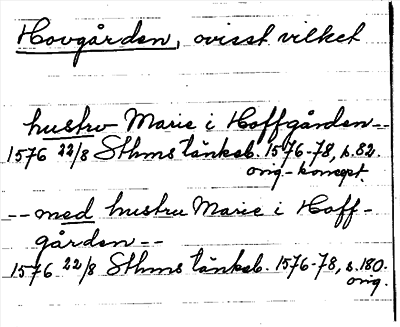 Hovgården, ovisst vilket
hustrv Marie i Hoffgården--
1576 22/8 Sthms tänkeb. 1576-78, s.82.
orig-koncept
-- med hustru Marie i Hoff-
gården--
1576 22/8 Sthms tänkeb. 1576-78, s.180.
orig.